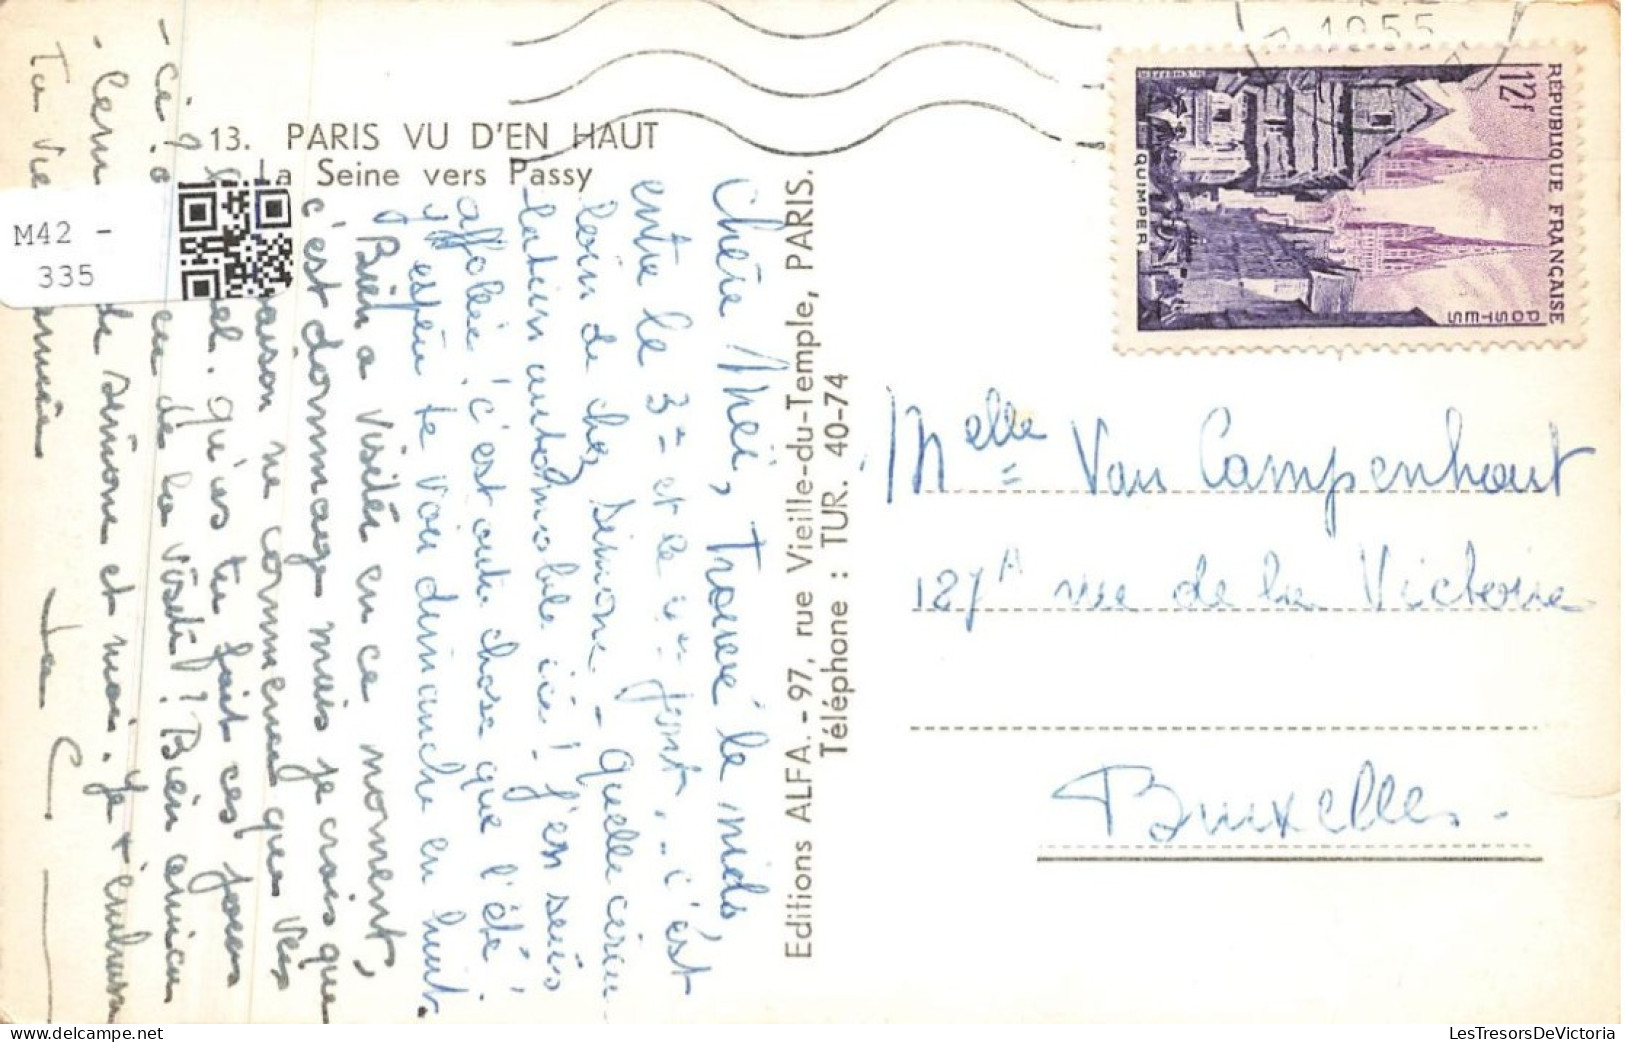 13. PARIS VU D'EN HAUT
La Seine vers Passy
M42 -
335
1955
12f
REPUBLIQUE FRANÇAISE
POSTES
QUIMPER
Editions ALFA. - 97, rue Vieille-du-Temple, PARIS.
Téléphone : TUR. 40-74
Chère Meï, Trouvé le nids,
entre le 3= et le font. .. c'est
loin de chez Simone - Quelle
latin automobile ici! J'en suis
affolée! c'est autre chose que l'été!
J'espère te voir dimanche en huit.
Bien a visité en ce moment,
c'est dommage mais je crois que
raison ne commence que vers
qu'as tu fait ces jours
cu de la visite? Bien
de Simone et moi. Je t'embrasse
Ta amie
Melle Van Campenhout
127A rue de la Victoire
Bruxelles.
LesTresorsDeVictoria
delcampe.net